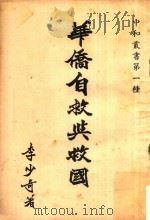 中和叢書第一種
華僑自救與救國
李少奇著